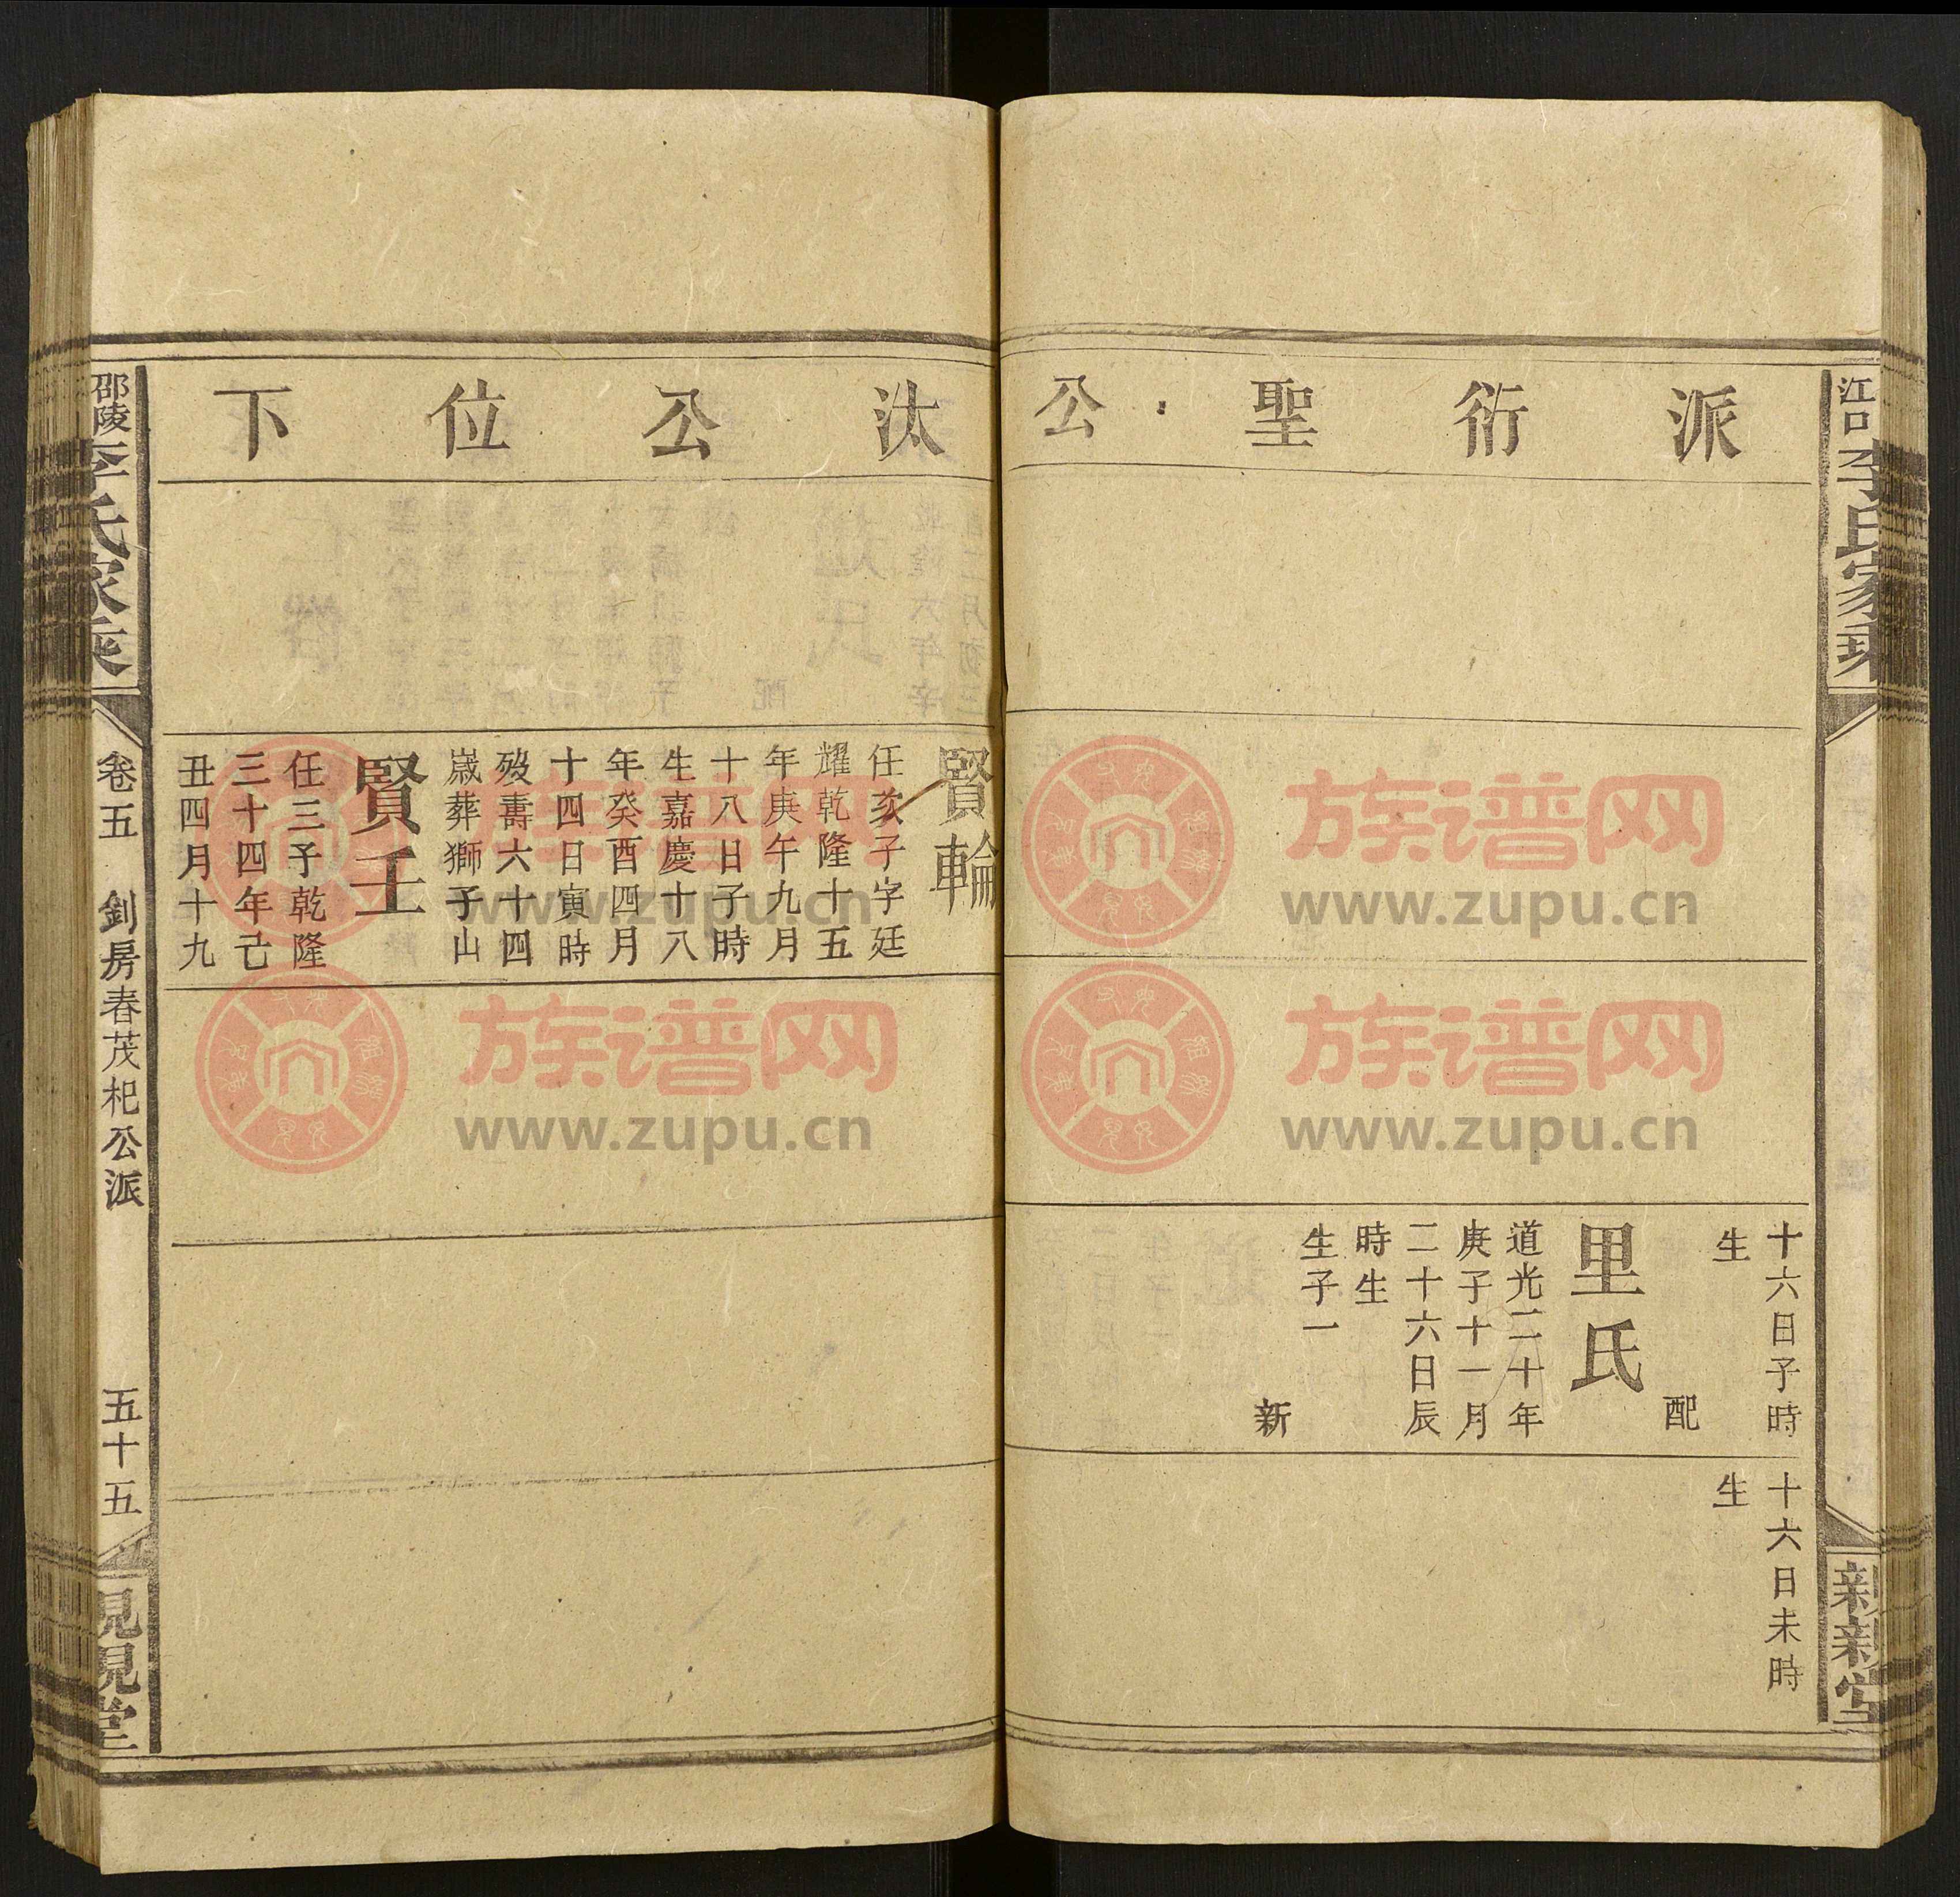 江口李氏家乘
新新堂
派衍聖公
十六日子時
生
配
里氏
道光二十年
庚子十一月
二十六日辰
時生
生子一
新
十六日未時
生
汰公位下
賢輪
任亥子字廷
耀乾隆十五
年庚午九月
十八日子時
生嘉慶十八
年癸酉四月
十四日寅時
殁壽六十四
歲葬獅子山
賢壬
任三子乾隆
三十四年己
丑四月十九
邵陵李氏家乘
卷五
釗房春茂杞公派
五十五
見見堂
族谱网
www.zupu.cn
族谱网
www.zupu.cn
族谱网
www.zupu.cn
族谱网
www.zupu.cn